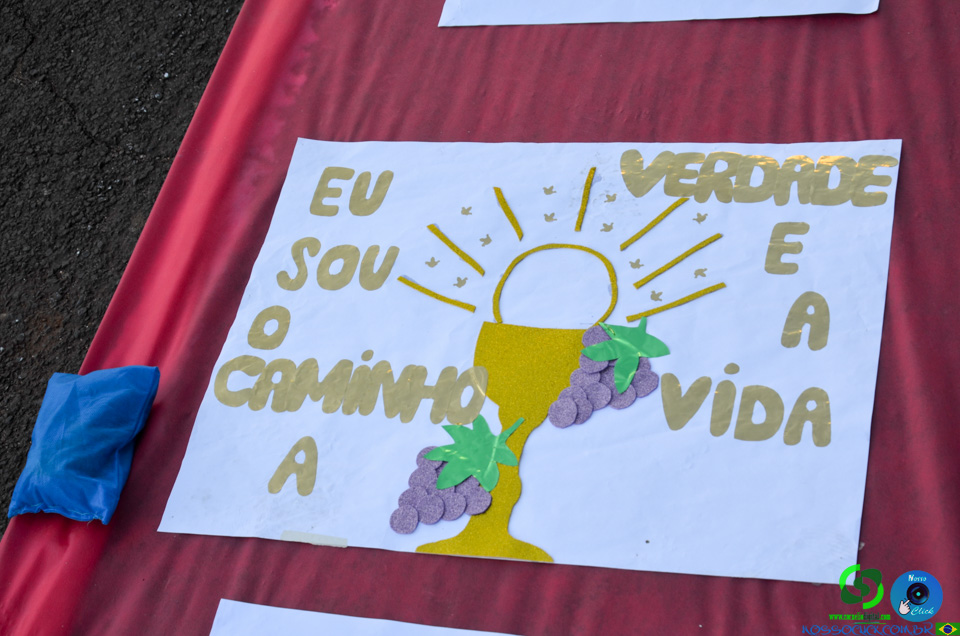 EU
SOU
O
CAMiNHO
A
VERDADE
E
A
ViDA
Nosso
Click
NOSSOCLICK.COM.BR